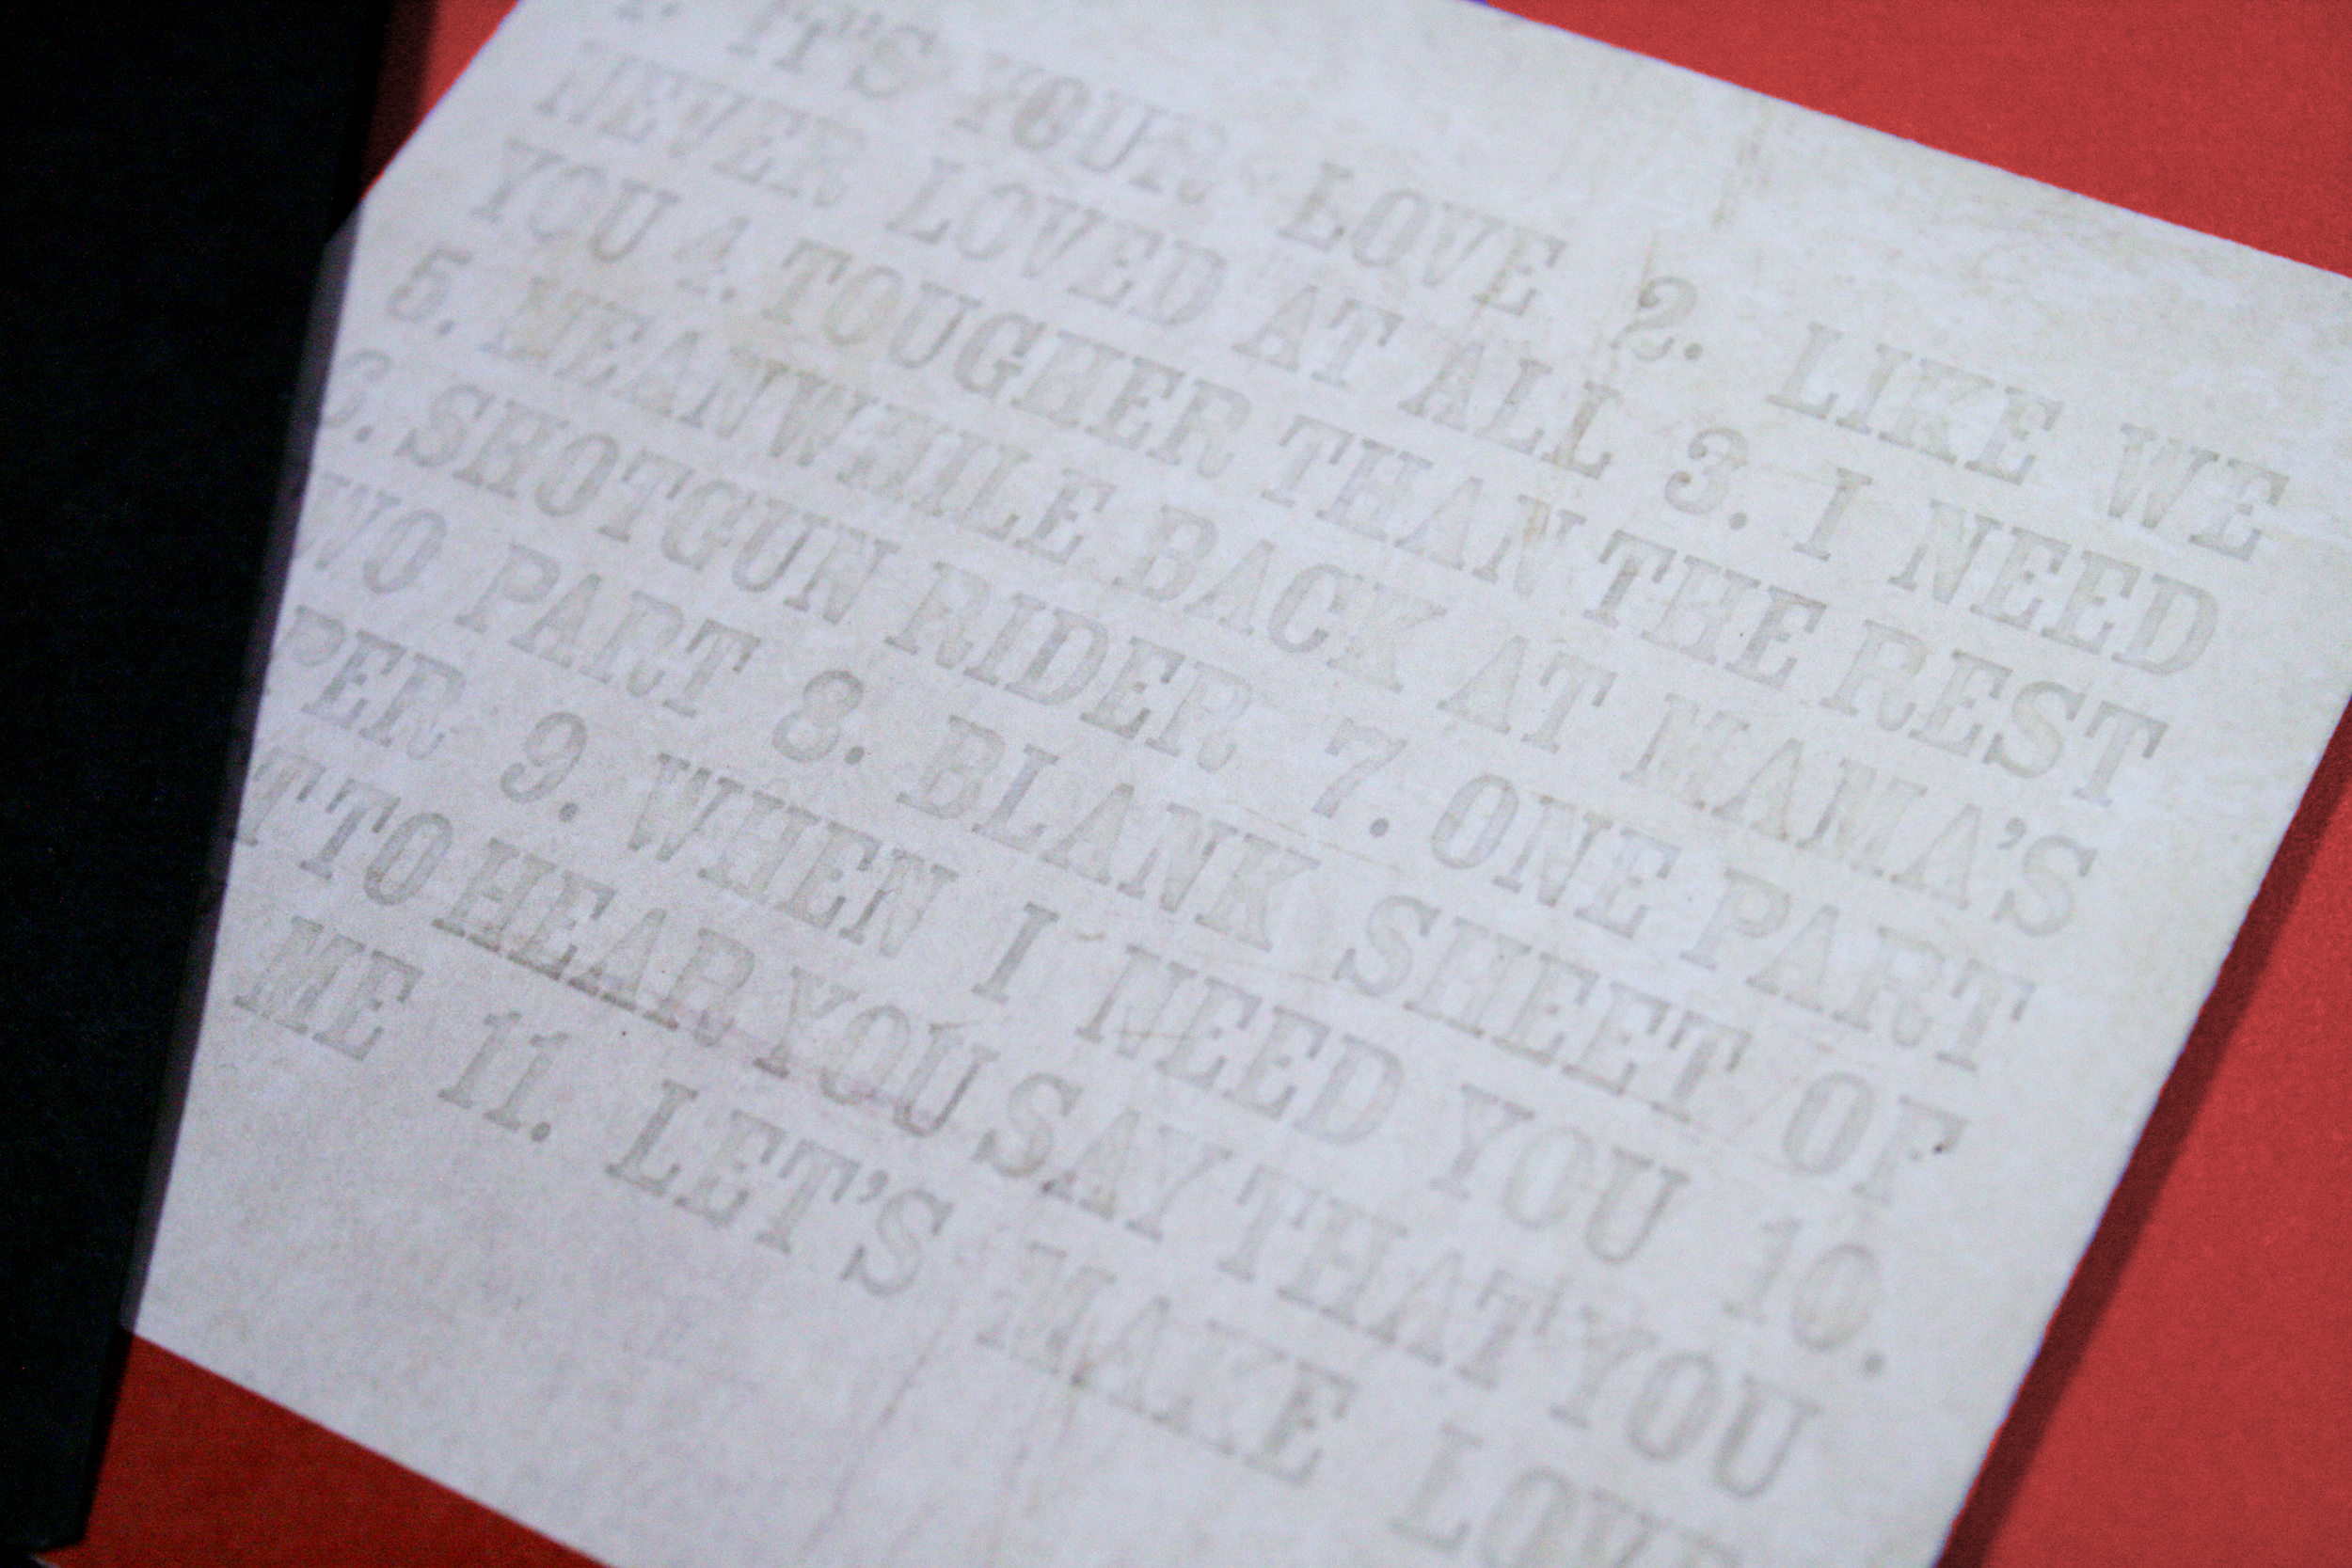 1. IT'S YOUR LOVE 2. LIKE WE
NEVER LOVED AT ALL 3. I NEED
YOU 4. TOUGHER THAN THE REST
5. MEANWHILE BACK AT MAMA'S
6. SHOTGUN RIDER 7. ONE PART
WO PART 8. BLANK SHEET OF
PER 9. WHEN I NEED YOU 10.
T TO HEAR YOU SAY THAT YOU
ME 11. LET'S MAKE LOVE